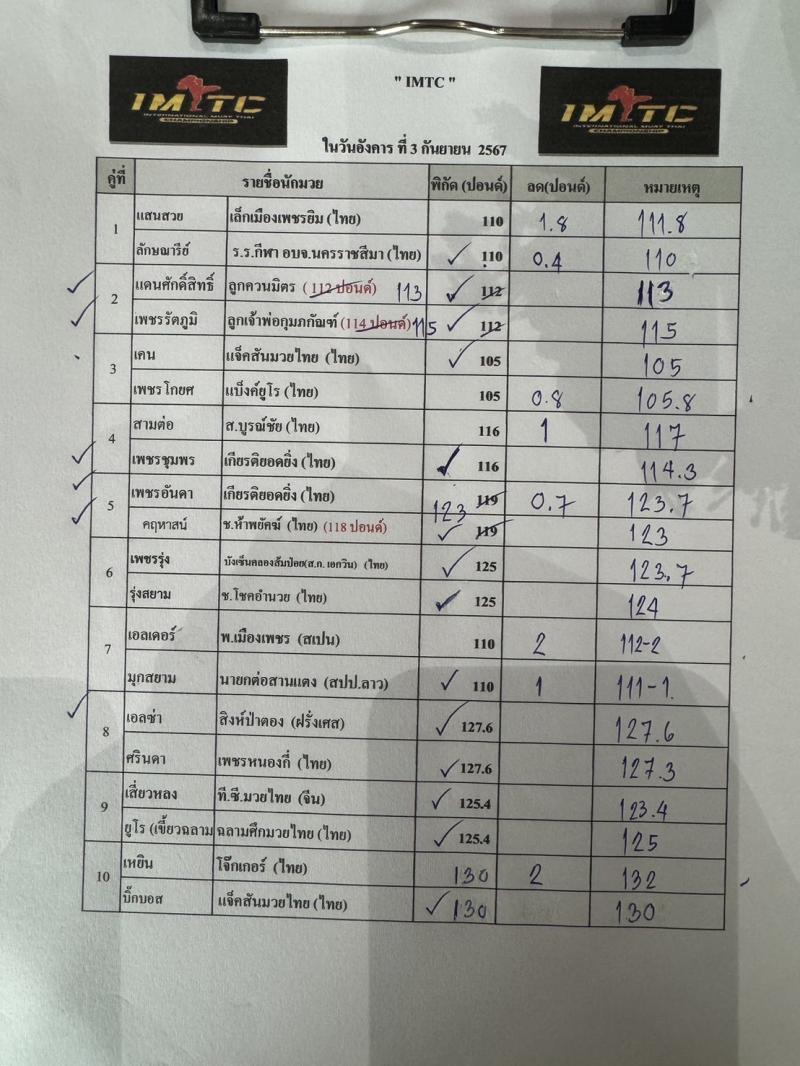 " IMTC "
IMTC
INTERNATIONAL MUAY THAI
CHAMPIONSHIP
IMTC
INTERNATIONAL MUAY THAI
CHAMPIONSHIP
ในวันอังคาร ที่ 3 กันยายน 2567
คู่ที่ รายชื่อนักมวย พิกัด (ปอนด์) ลด(ปอนด์) หมายเหตุ
1 แสนสวย เล็กเมืองเพชรยิม (ไทย) 110 1.8 111.8
ลักษณารีย์ ร.ร.กีฬา อบจ.นครราชสีมา (ไทย) ✓ 110 0.4 110
✓ 2 แดนศักดิ์สิทธิ์ ลูกควนมิตร ( 112 ปอนด์) 113 ✓ 112 113
✓ เพชรรัตภูมิ ลูกเจ้าพ่อกุมภกัณฑ์ (114 ปอนด์) 115 ✓ 112 115
3 เคน แจ็คสันมวยไทย (ไทย) ✓ 105 105
เพชรโกยศ แบ็งค์ยูโร (ไทย) 105 0.8 105.8
4 สามต่อ ส.บูรณ์ชัย (ไทย) 116 1 117
✓ เพชรชุมพร เกียรติยอดยิ่ง (ไทย) ✓ 116 114.3
✓ 5 เพชรอันดา เกียรติยอดยิ่ง (ไทย) 123 119 0.7 123.7
✓ คฤหาสน์ ช.ห้าพยัคฆ์ (ไทย) (118 ปอนด์) ✓ 119 123
6 เพชรรุ่ง บังเซ็นคลองส้มป่อย(ส.ก. เอกวิน) (ไทย) ✓ 125 123.7
รุ่งสยาม ช.โชคอำนวย (ไทย) ✓ 125 124
7 เอลเดอร์ พ.เมืองเพชร (สเปน) 110 2 112-2
มุกสยาม นายกต่อสานแตง (สปป.ลาว) ✓ 110 1 111-1
✓ 8 เอลซ่า สิงห์ป่าตอง (ฝรั่งเศส) ✓ 127.6 127.6
ศรินดา เพชรหนองกี่ (ไทย) ✓ 127.6 127.3
9 เสี่ยวหลง ที.ซี.มวยไทย (จีน) ✓ 125.4 123.4
ยูโร (เขี้ยวฉลาม ฉลามศึกมวยไทย (ไทย) ✓ 125.4 125
10 เหยิน โจ๊กเกอร์ (ไทย) 130 2 132
บิ๊กบอส แจ็คสันมวยไทย (ไทย) ✓ 130 130